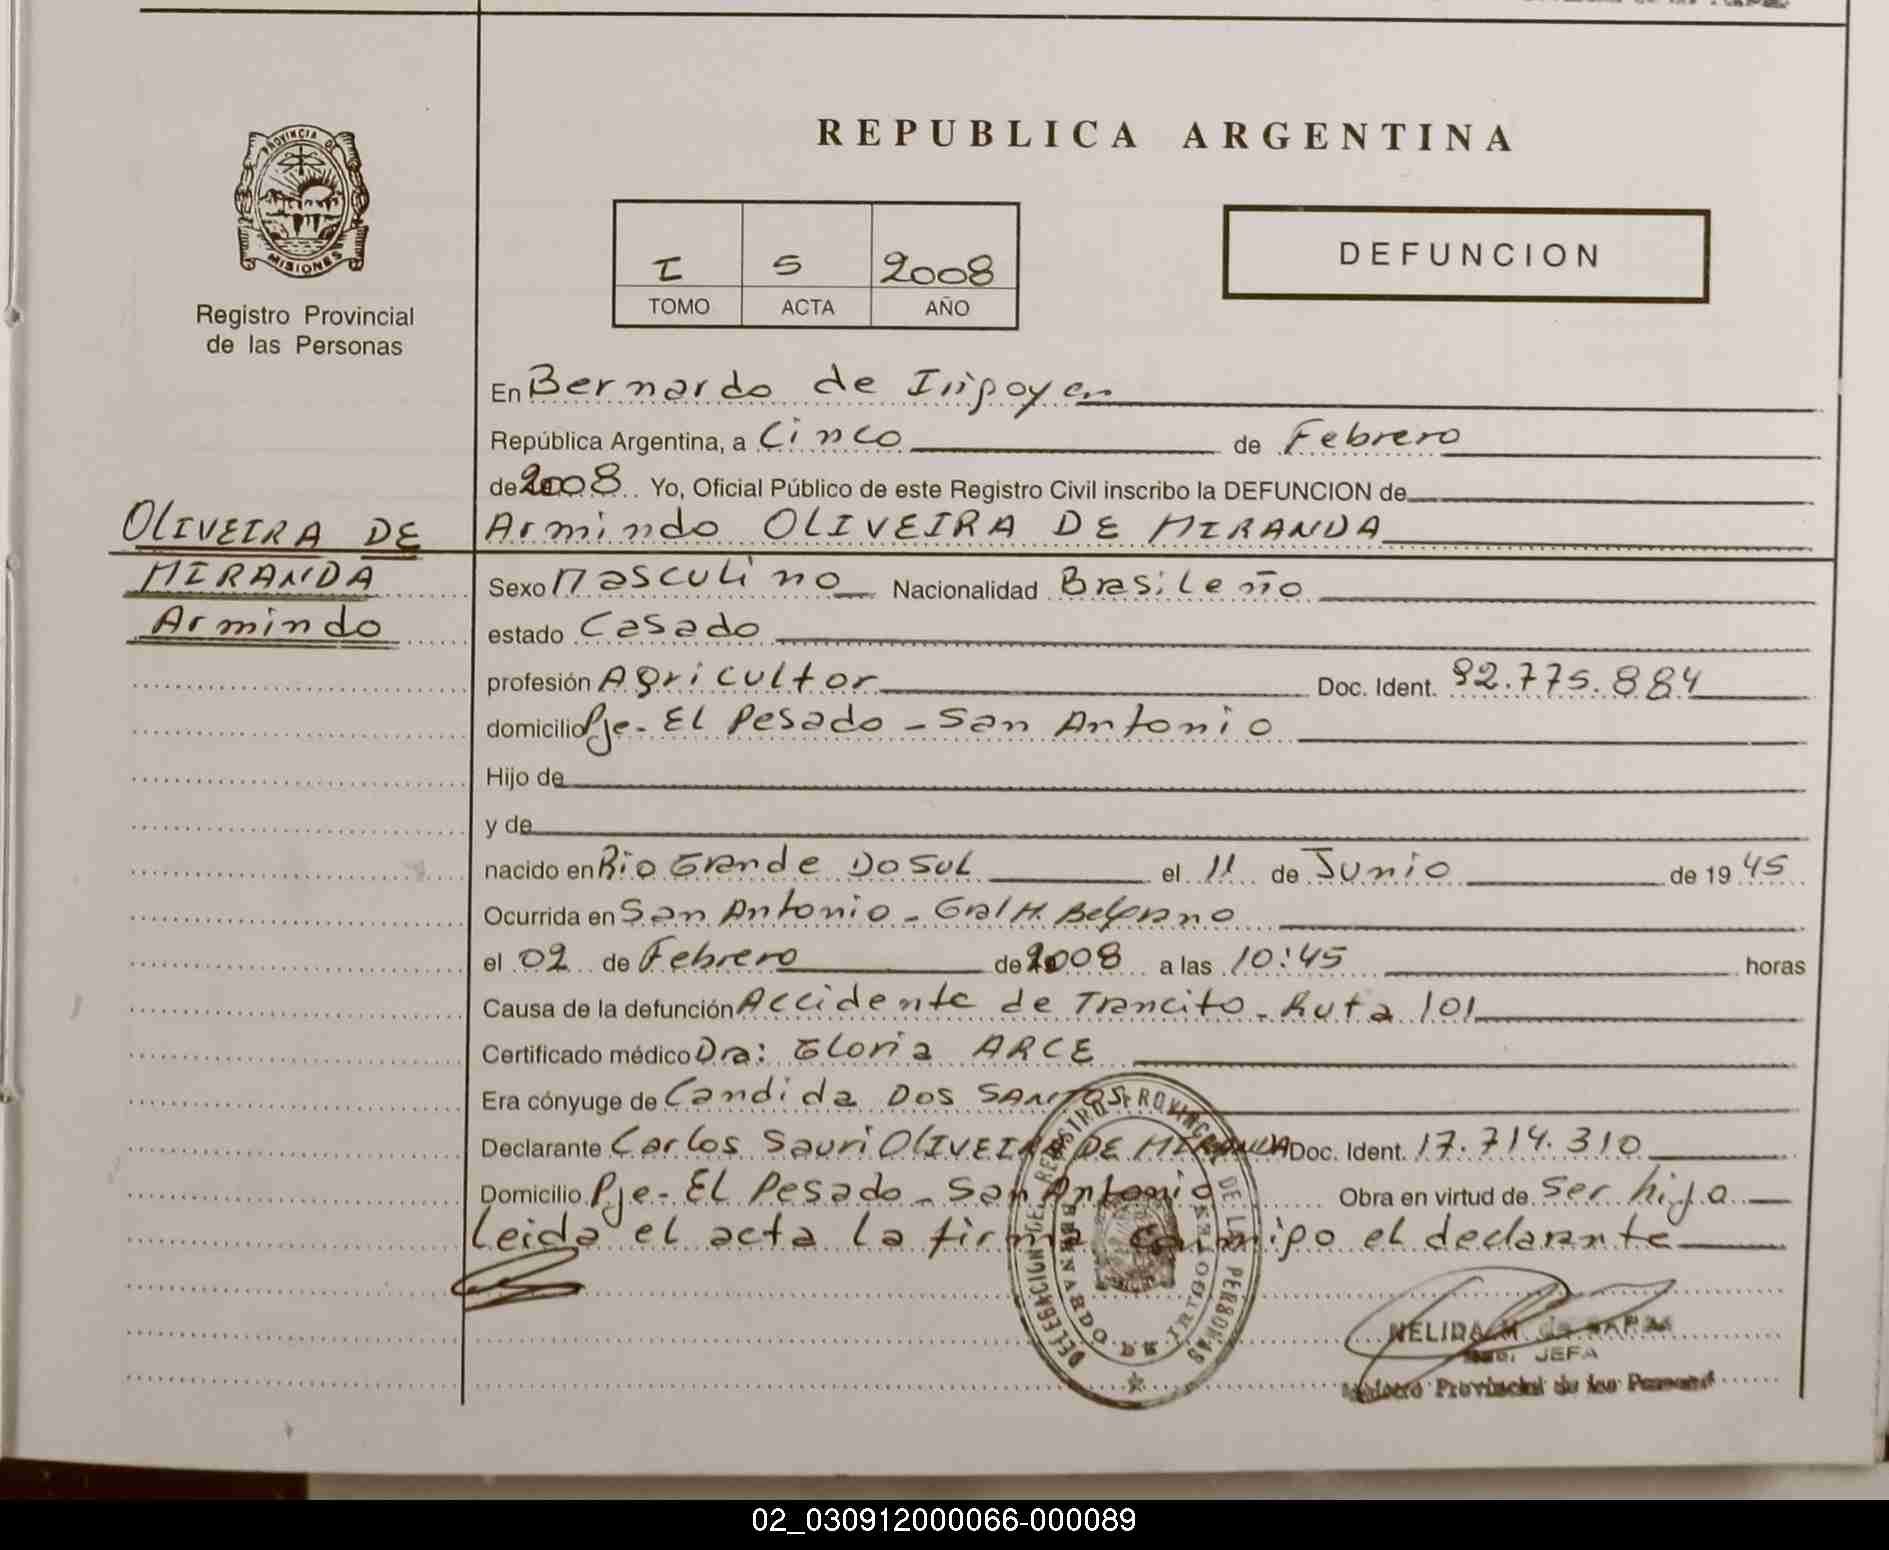 REPUBLICA ARGENTINA
PROVINCIA DE
MISIONES
Registro Provincial
de las Personas
I 5 2008
TOMO ACTA AÑO
DEFUNCION
En Bernardo de Irigoyen
República Argentina, a Cinco de Febrero
de 2008 Yo, Oficial Público de este Registro Civil inscribo la DEFUNCION de
Armindo OLIVEIRA DE MIRANDA
OLIVEIRA DE
MIRANDA
Armindo
Sexo Masculino Nacionalidad Brasileño
estado Casado
profesión Agricultor Doc. Ident. 92.775.884
domicilio Pje- El Pesado - San Antonio
Hijo de
y de
nacido en Rio Grande Do Sul el 11 de Junio de 1945
Ocurrida en San Antonio - Gral M. Belgrano
el 02 de Febrero de 2008 a las 10:45 horas
Causa de la defunción Accidente de Trancito - Ruta 101
Certificado médico Dra: Gloria ARCE
Era cónyuge de Candida DOS SANTOS
Declarante Carlos Sauri OLIVEIRA DE MIRANDA Doc. Ident. 17.714.310
Domicilio Pje- El Pesado - San Antonio Obra en virtud de Ser hijo
Leida el acta la firma conmigo el declarante
DELEGACION DEL REGISTRO PROVINCIAL DE LAS PERSONAS
BERNARDO DE IRIGOYEN
NELIDA M. de
JEFA
Registro Provincial de las Personas
02_030912000066-000089